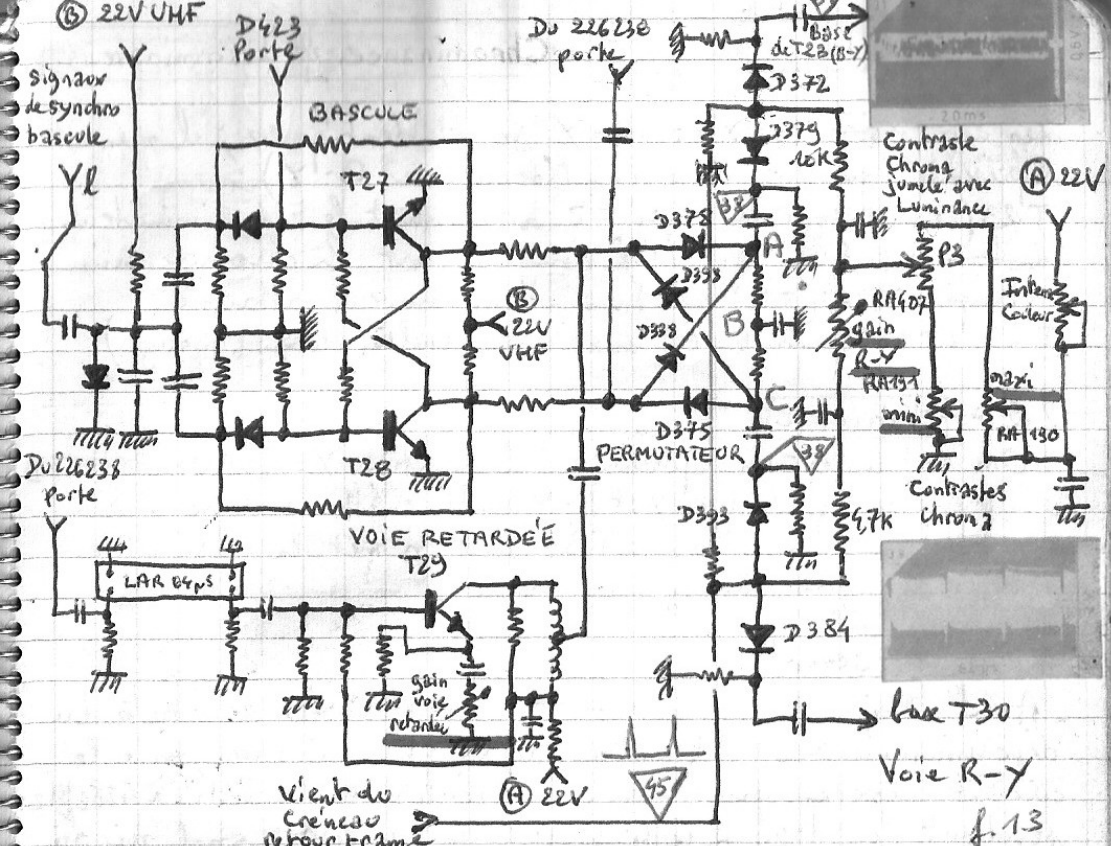 B 22V UHF
D423
Porte
Du 226238
porte
Base
de T23 (B-Y)
Signaux
de synchro
bascule
BASCULE
D372
D379
10K
20ms
Contraste
Chroma
jumelé avec
Luminance
A 22V
T27
38
D378
A
D398
P3
B
22V
VHF
B
RA407
gain
R-Y
RA191
D338
Couleur
maxi
mini
C
RA 190
D375
T28
PERMUTATEUR
38
Contrastes
Chroma
Du 226238
porte
D393
4,7K
VOIE RETARDÉE
T29
LAR 64µS
D384
gain
voie
retardée
base T30
45
Voie R-Y
A 22V
Vient du
Créneau
retour trame
f.13